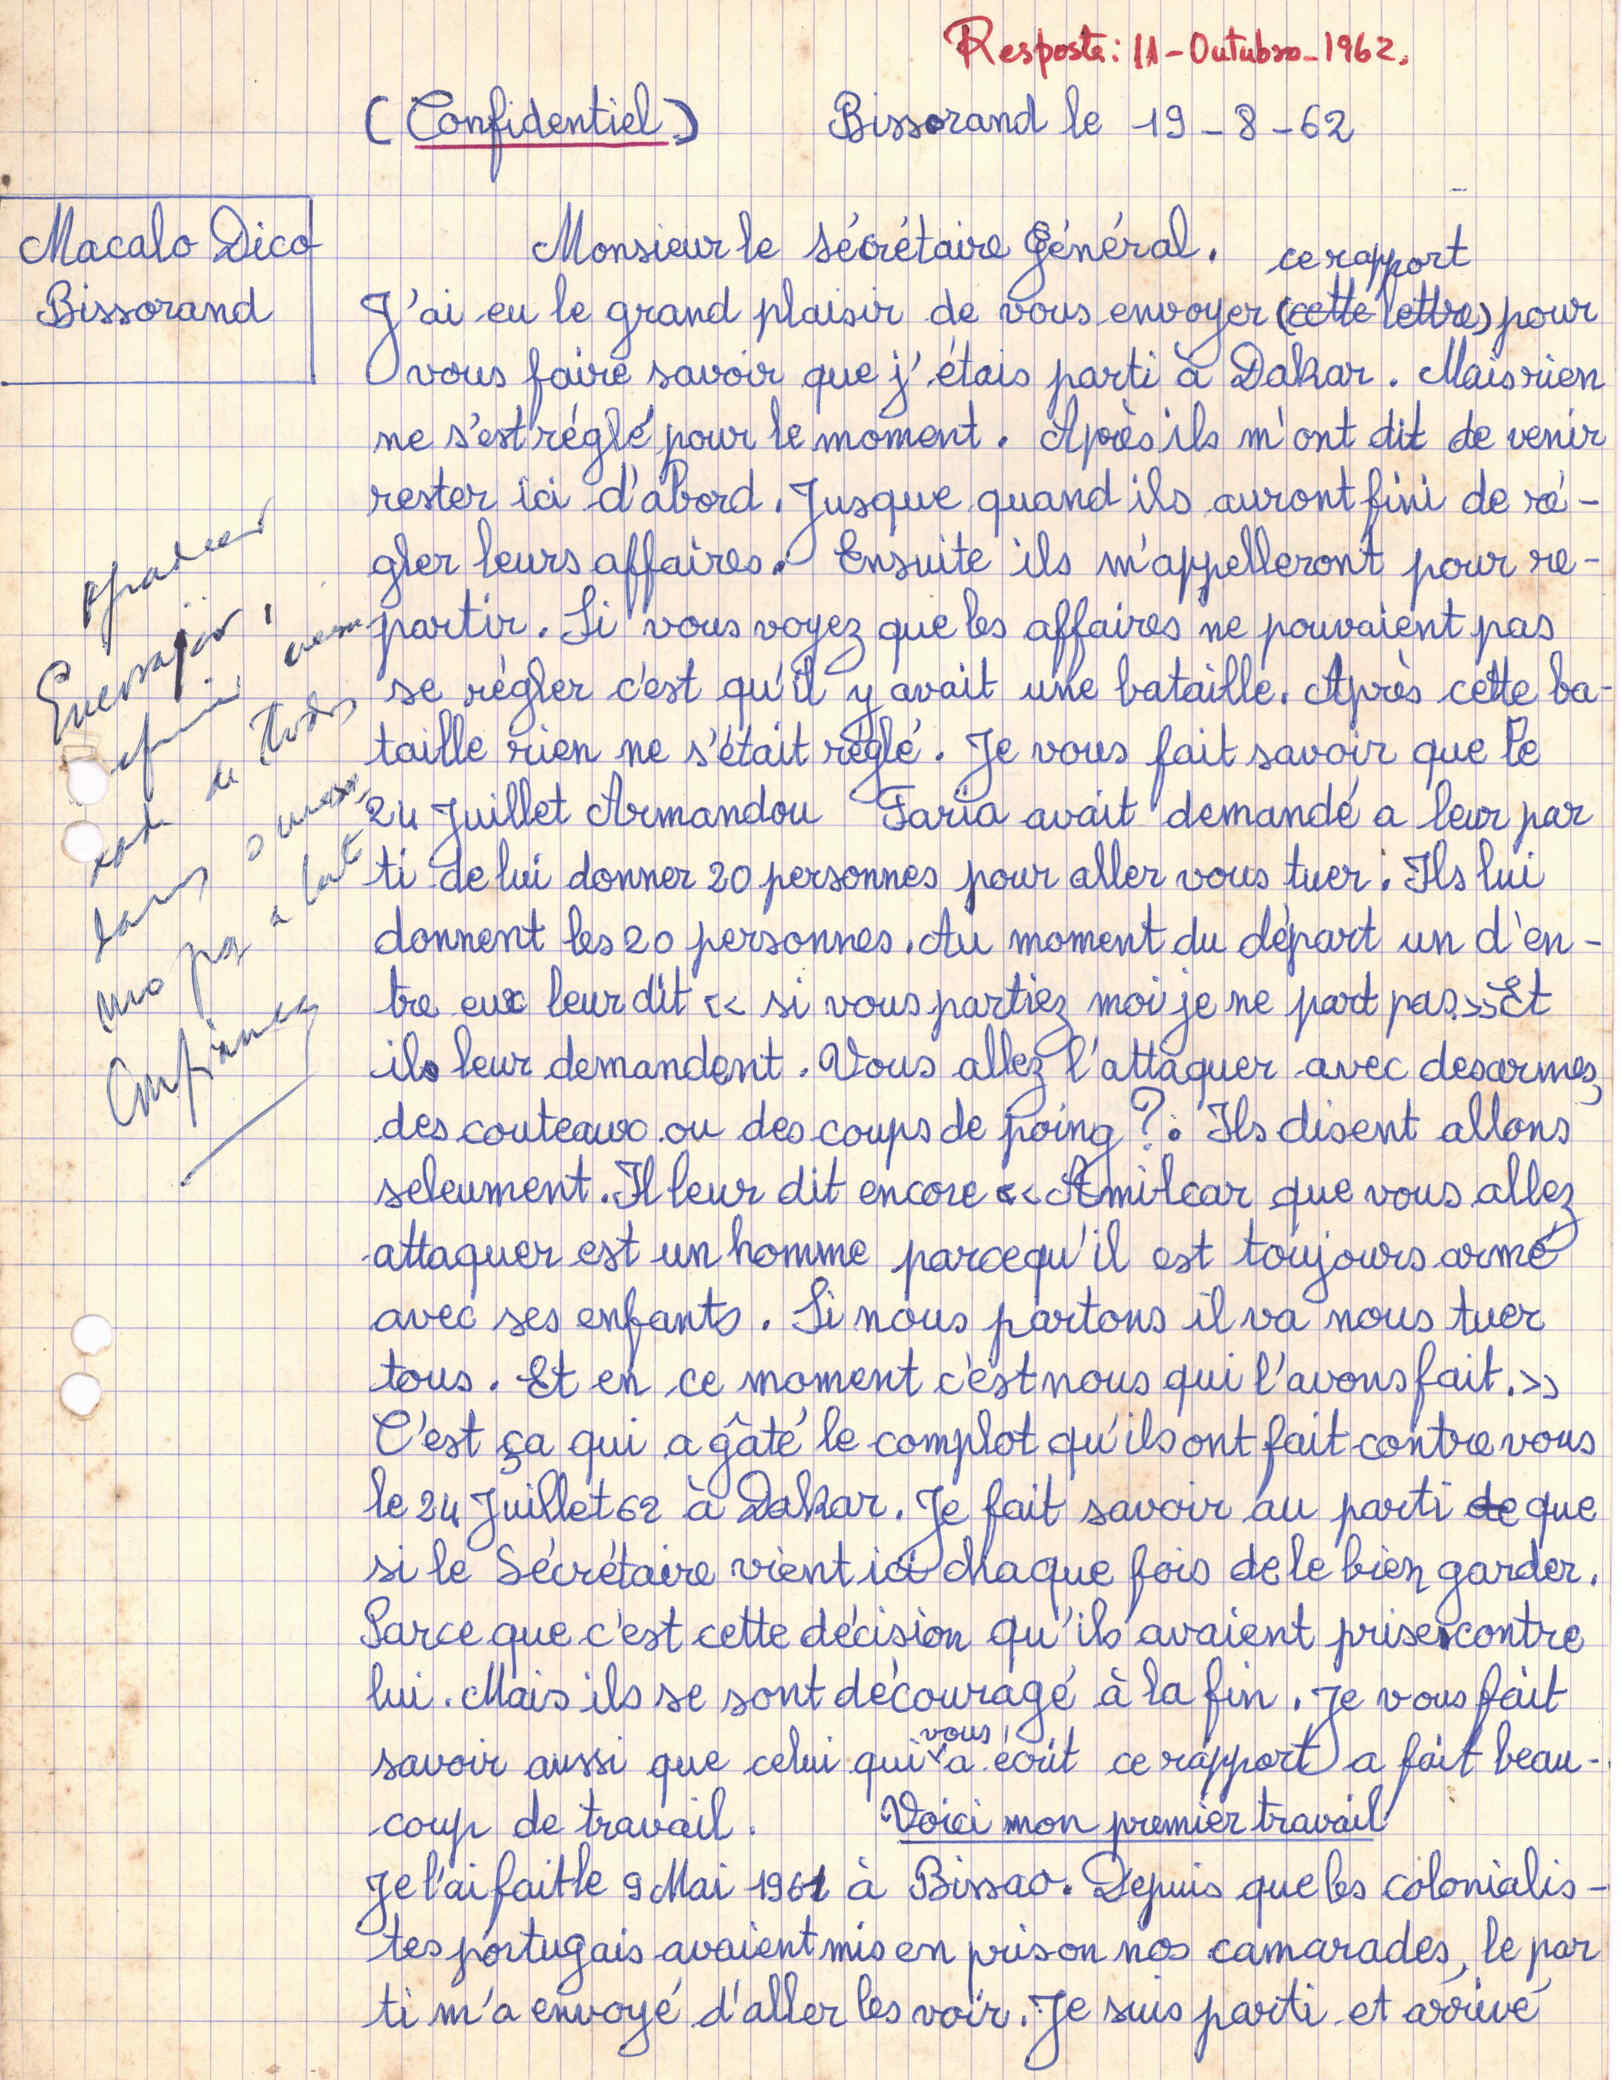 Resposta: 11-Outubro-1962.
(Confidentiel) Bissorand le 19-8-62
Macalo Dico
Bissorand
Monsieur le sécrétaire Général.
ce rapport
J'ai eu le grand plaisir de vous envoyer (cette lettre) pour
vous faire savoir que j'étais parti à Dakar. Mais rien
ne s'est réglé pour le moment. Après ils m'ont dit de venir
rester ici d'abord. Jusque quand ils auront fini de ré-
gler leurs affaires. Ensuite ils m'appelleront pour re-
partir. Si vous voyez que les affaires ne pouvaient pas
se régler c'est qu'il y avait une bataille. Après cette ba-
taille rien ne s'était réglé. Je vous fait savoir que le
24 Juillet Armandou Faria avait demandé a leur par
ti de lui donner 20 personnes pour aller vous tuer. Ils lui
donnent les 20 personnes. Au moment du départ un d'en-
tre eux leur dit << si vous partiez moi je ne part pas.>> Et
ils leur demandent. Vous allez l'attaquer avec des armes,
des couteaux ou des coups de poing ?. Ils disent allons
seleument. Il leur dit encore << Amilcar que vous allez
attaquer est un homme parcequ'il est toujours armé
avec ses enfants. Si nous partons il va nous tuer
tous. Et en ce moment c'est nous qui l'avons fait.>>
C'est ça qui a gâté le complot qu'ils ont fait contre vous
le 24 Juillet 62 à Dakar. Je fait savoir au parti de que
si le Sécrétaire vient ici chaque fois de le bien garder.
Parce que c'est cette décision qu'ils avaient prise contre
lui. Mais ils se sont découragé à la fin. Je vous fait
savoir aussi que celui qui vous a écrit ce rapport a fait beau-
coup de travail. Voici mon premier travail
Je l'ai fait le 9 Mai 1961 à Bissao. Depuis que les colonialis-
tes portugais avaient mis en prison nos camarades, le par
ti m'a envoyé d'aller les voir. Je suis parti et arrivé
Encorajar,
de todos
confiança